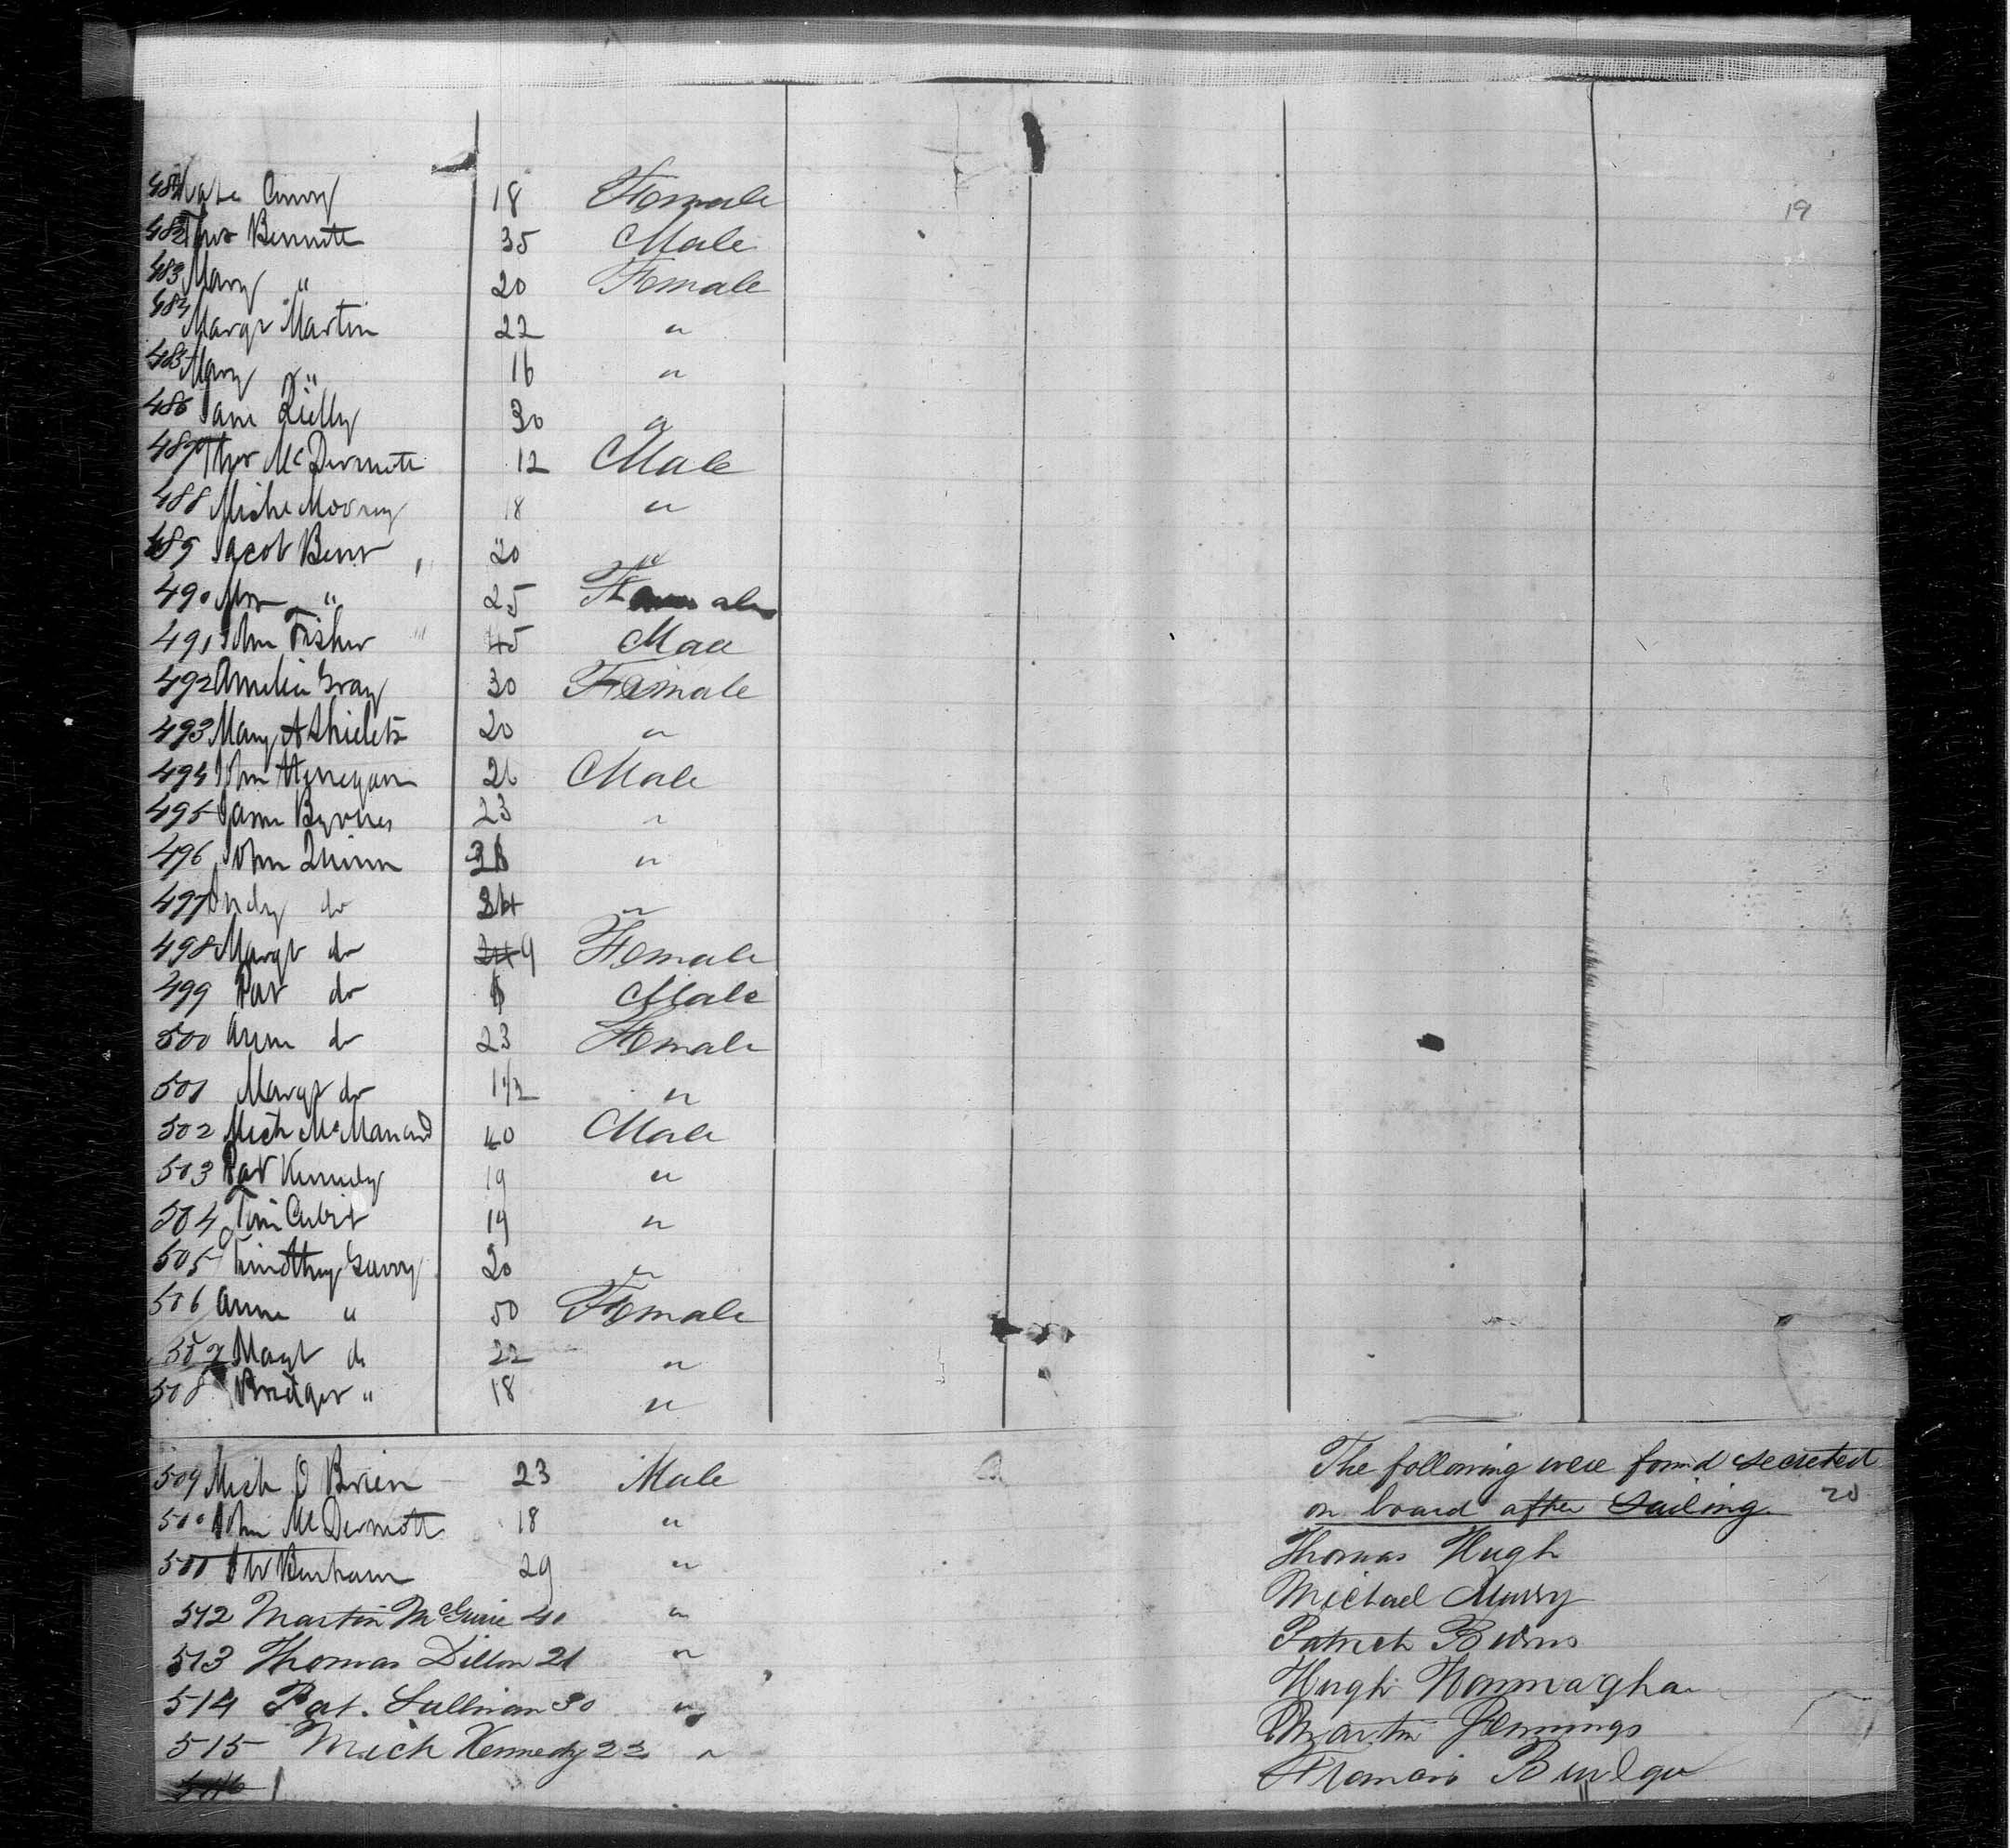 481 Kate Conroy 18 Female
19
482 Thos Bennett 35 Male
483 Mary " 20 Female
484 Margt Martin 22 "
485 Mary " 16 "
486 Jane Rielly 30 "
487 Thos McDermott 12 Male
488 Miche 18 "
489 Jacob 20 "
490 Mrs " 25 Female
491 John Fisher 45 Male
492 Amelia Gray 30 Female
493 Mary A Shields 20 "
494 John 26 Male
495 James Byrnes 23 "
496 John Quinn "
497 Andy do "
498 Margt do 9 Female
499 Pat do Male
500 Anne do 23 Female
501 Margt do 1 1/2 "
502 Mich 40 Male
503 Pat Kennedy 19 "
504 Tim 19 "
505 Timothy 20 "
506 Anne " 50 Female
507 Margt do 22 "
508 Bridget " 18 "
509 Mich O Brien 23 Male
The following were found secreted
on board after Sailing. 20
510 John McDermott 18 "
29 "
Thomas Hugh
Michael
512 Martin McGuire 40 "
Patrick Burns
513 Thomas Dillon 21 "
Hugh
514 Pat. Sullivan 30 "
Martin Jennings
515 Mich Kennedy 23 "
Francis